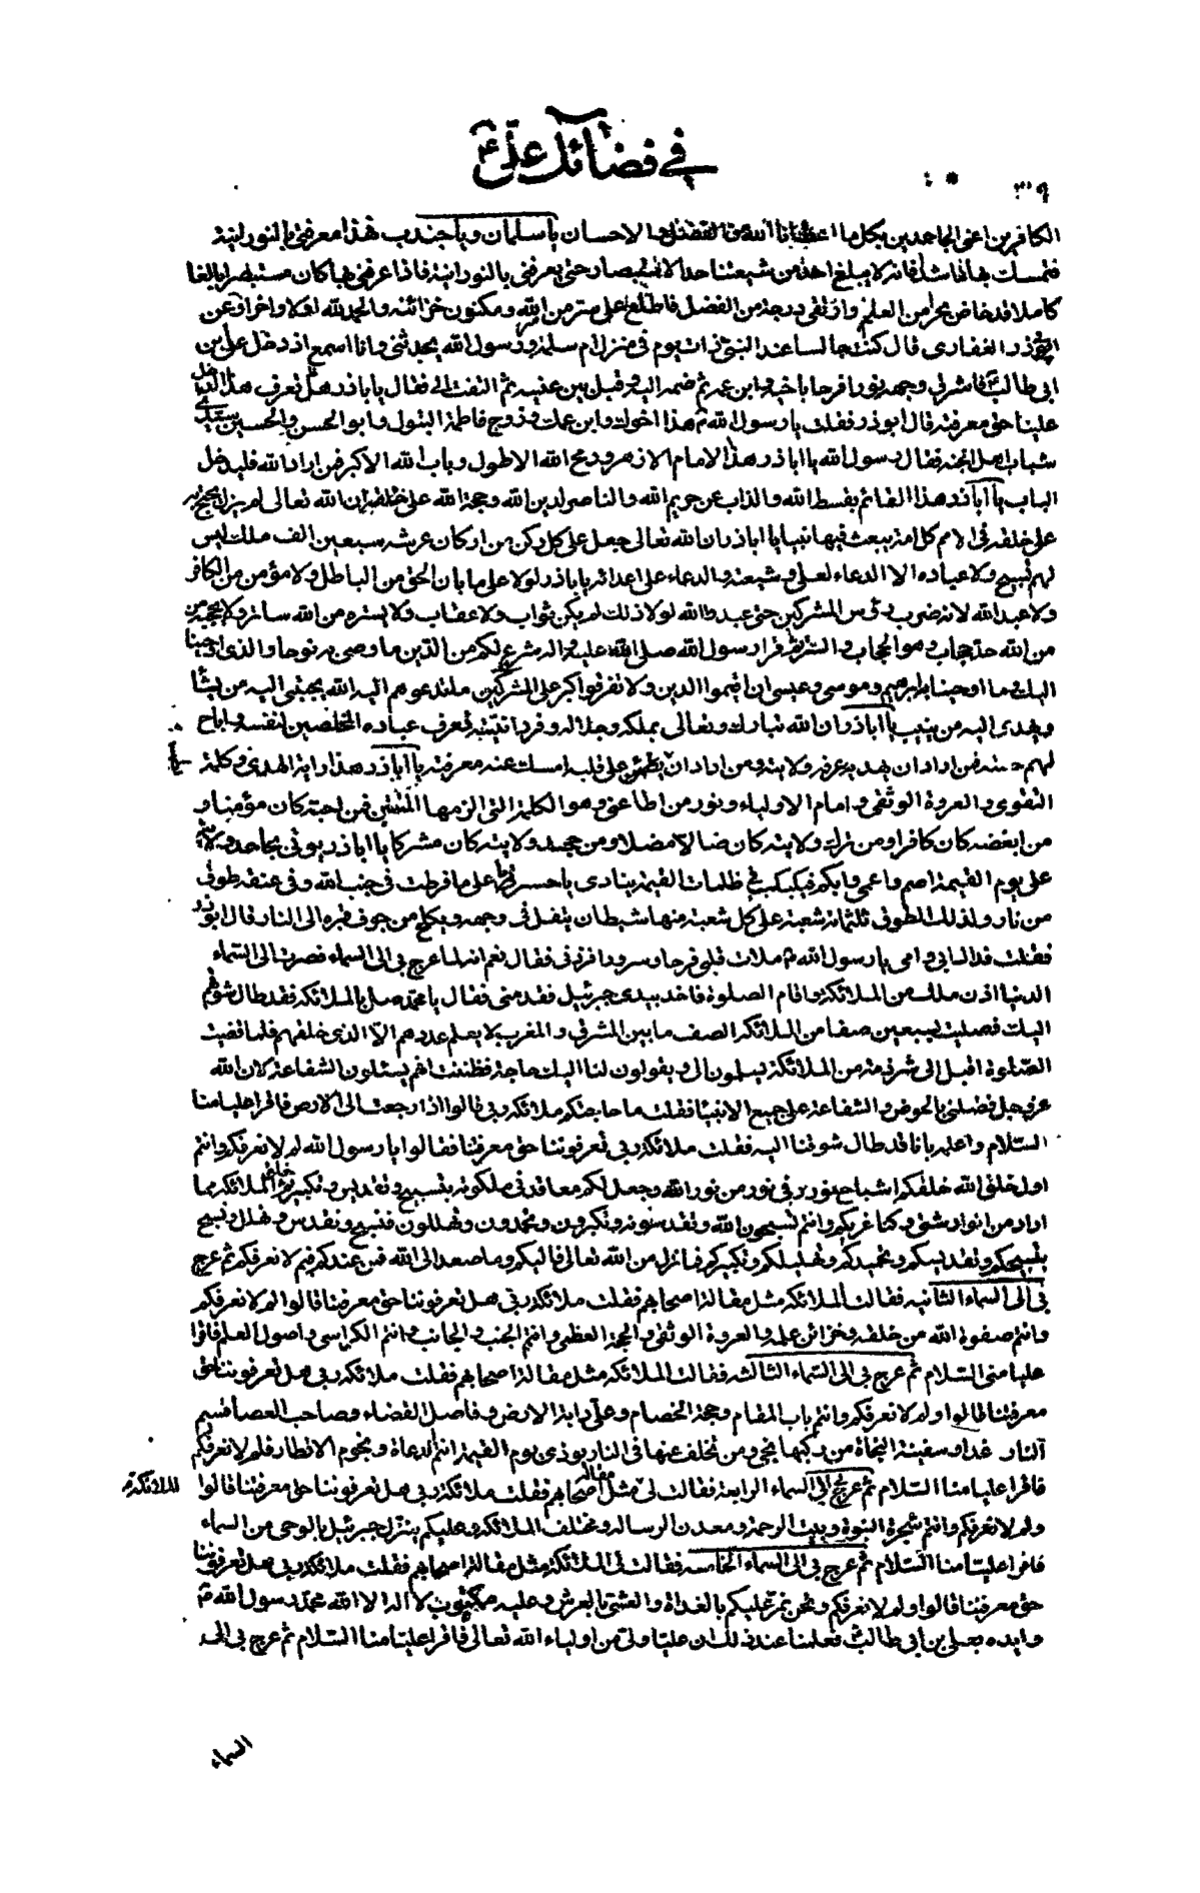 في فضائل علي ع
٣٩
الكافرين اعنى الجاحدين بكل ما اعطانا الله من الفضل والاحسان يا سلمان ويا جندب فهذا معرفتي بالنورانية
فتمسك بها راشدا فانه لا يبلغ احد من شيعتنا حد الاستبصار حتى يعرفني بالنورانية فاذا عرفني بها كان مستبصرا بالغا
كاملا قد خاض بحرا من العلم وارتقى درجة من الفضل واطلع على سر من سر الله ومكنون خزائنه والحمد لله اولا واخرا وعن
ابي ذر الغفاري قال كنت جالسا عند النبي ذات يوم في منزل ام سلمة ورسول الله يحدثني وانا اسمع اذ دخل علي بن
ابي طالب فاشرق وجهه نورا فرحا باخيه وابن عمه ثم ضمه اليه وقبل بين عينيه ثم التفت الي فقال يا باذر هل تعرف هذا الداخل
علينا حق معرفته قال ابوذر فقلت يا رسول الله هذا اخوك وابن عمك وزوج فاطمة البتول وابو الحسن والحسين سيدي
شباب اهل الجنة فقال رسول الله يا اباذر هذا الامام الازهر ورمح الله الاطول وباب الله الاكبر فمن اراد الله فليدخل
الباب يا اباذر هذا القائم بقسط الله والذاب عن حريم الله والناصر لدين الله وحجة الله على خلقه ان الله تعالى لم يزل يحتج به
على خلقه في الامم كل امة يبعث فيها نبيا يا اباذر ان الله تعالى جعل على كل ركن من اركان عرشه سبعين الف ملك ليس
لهم تسبيح ولا عبادة الا الدعاء لعلي وشيعته والدعاء على اعدائه يا باذر لولا علي ما بان الحق من الباطل ولا مؤمن من الكافر
ولا عبد الله لانه ضرب رؤس المشركين حتى عبدوا الله لولا ذلك لم يكن ثواب ولا عقاب ولا يستره من الله ساتر ولا يحجبه من
من الله حجاب وهو الحجاب والستر ثم قرا رسول الله صلى الله عليه واله شرع لكم من الدين ما وصى به نوحا والذي اوحينا
اليك وما اوحينا به ابراهيم وموسى وعيسى ان اقيموا الدين ولا تفرقوا كبر على المشركين ما تدعوهم اليه الله يجتبي اليه من يشاء
ويهدي اليه من ينيب يا اباذر ان الله تبارك وتعالى بملكه ووحدانيته وفردانيته فعرف عباده المخلصين لنفسه واباح
لهم جنته فمن اراد ان يهديه عرفه ولايته ومن اراد ان يطمس على قلبه امسك عنه معرفته يا اباذر هذا راية الهدى وكلمة
التقوى والعروة الوثقى وامام الاولياء ونور من اطاعني وهو الكلمة التي الزمها المتقين فمن احبه كان مؤمنا و
من ابغضه كان كافرا ومن ترك ولايته كان ضالا مضلا ومن جحد ولايته كان مشركا يا اباذر يؤتى بجاحد ولاية
علي يوم القيمة اصم واعمى وابكم فيكبكب في ظلمات القيمة ينادي يا حسرتا على ما فرطت في جنب الله وفي عنقه طوق
من نار ولذلك الطوق ثلثمائة شعبة على كل شعبة منها شيطان يتفل في وجهه ويكلح من جوف قبره الى النار قال ابوذر
فقلت فداك ابي وامي يا رسول الله ملات قلبي فرحا وسرورا فزدني فقال نعم انه لما عرج بي الى السماء فصرت الى السماء
الدنيا اذن ملك من الملائكة واقام الصلوة فاخذ بيدي جبرئيل فقدمني فقال يا محمد صل بالملائكة فقد طال شوقهم
اليك فصليت بسبعين صفا من الملائكة الصف ما بين المشرق والمغرب لا يعلم عددهم الا الذي خلقهم فلما قضيت
الصلوة اقبل الي شرذمة من الملائكة يسلمون الي ويقولون لنا اليك حاجة فظننت انهم يسئلون الشفاعة لان الله
عز وجل فضلني بالحوض والشفاعة على جميع الانبياء فقلت ما حاجتكم ملائكة ربي قالوا اذا رجعت الى الارض فاقرا عليا منا
السلام واعلمه بانا قد طال شوقنا اليه فقلت ملائكة ربي تعرفوننا حق معرفتنا فقالوا يا رسول الله لم لا نعرفكم وانتم
اول خلق الله خلقكم اشباح نور في نور من نور الله وجعل لكم مقاعد في ملكوته بتسبيح وتقديس وتكبير ثم خلق الملائكة مما
اراد من انوار شتى وكنا نمر بكم وانتم تسبحون الله وتقدسونه وتكبرون وتحمدون وتهللون فنسبح ونقدس ونهلل ونسبح
بتسبيحكم وتقديسكم وتحميدكم وتهليلكم وتكبيركم فما نزل من الله تعالى فاليكم وما صعد الى الله فمن عندكم فلم لا نعرفكم ثم عرج
بي الى السماء الثانية فقالت الملائكة مثل مقالة اصحابهم فقلت ملائكة ربي هل تعرفوننا حق معرفتنا قالوا لم لا نعرفكم
وانتم صفوة الله من خلقه وخزائن علمه والعروة الوثقى والحجة العظمى وانتم الجنب والجانب وانتم الكراسي واصول العلم فاقرا
عليا منا السلام ثم عرج بي الى السماء الثالثة فقالت الملائكة مثل مقالة اصحابهم فقلت ملائكة ربي هل تعرفوننا حق
معرفتنا قالوا ولم لا نعرفكم وانتم باب المقام وحجة الخصام وعلي دابة الارض وفاصل القضاء وصاحب العصا قسيم
النار غدا وسفينة النجاة من ركبها نجى ومن تخلف عنها في النار يوذى يوم القيمة انتم الدعاة ونجوم الاقطار فلم لا نعرفكم
فاقرا عليا منا السلام ثم عرج بي الى السماء الرابعة فقالت لي الملائكة مثل مقالة اصحابهم فقلت ملائكة ربي هل تعرفوننا حق معرفتنا قالوا
ولم لا نعرفكم وانتم شجرة النبوة وبيت الرحمة ومعدن الرسالة ومختلف الملائكة وعليكم ينزل جبرئيل بالوحي من السماء
فاقرا عليا منا السلام ثم عرج بي الى السماء الخامسة فقالت لي الملائكة مثل مقالة اصحابهم فقلت ملائكة ربي هل تعرفوننا
حق معرفتنا قالوا ولم لا نعرفكم ونحن نمر عليكم بالغداة والعشي بالعرش وعليه مكتوب لا اله الا الله محمد رسول الله
وايده بعلي بن ابي طالب فعلمنا عند ذلك ان عليا ولي من اولياء الله تعالى فاقرا عليا منا السلام ثم عرج بي الى
السماء